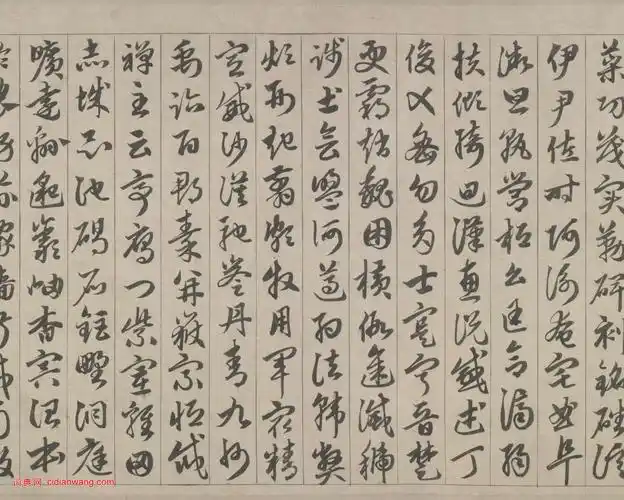 策功茂實勒碑刻銘磻溪
伊尹佐時阿衡奄宅曲阜
微旦孰營桓公匡合濟弱
扶傾綺迴漢惠說感武丁
俊乂密勿多士寔寧晉楚
更霸趙魏困橫假途滅虢
踐土會盟何遵約法韓弊
煩刑起翦頗牧用軍最精
宣威沙漠馳譽丹青九州
禹跡百郡秦并嶽宗恆岱
禪主云亭雁門紫塞雞田
赤城昆池碣石鉅野洞庭
曠遠緜邈巖岫杳冥治本
词典网 www.cidianwang.com